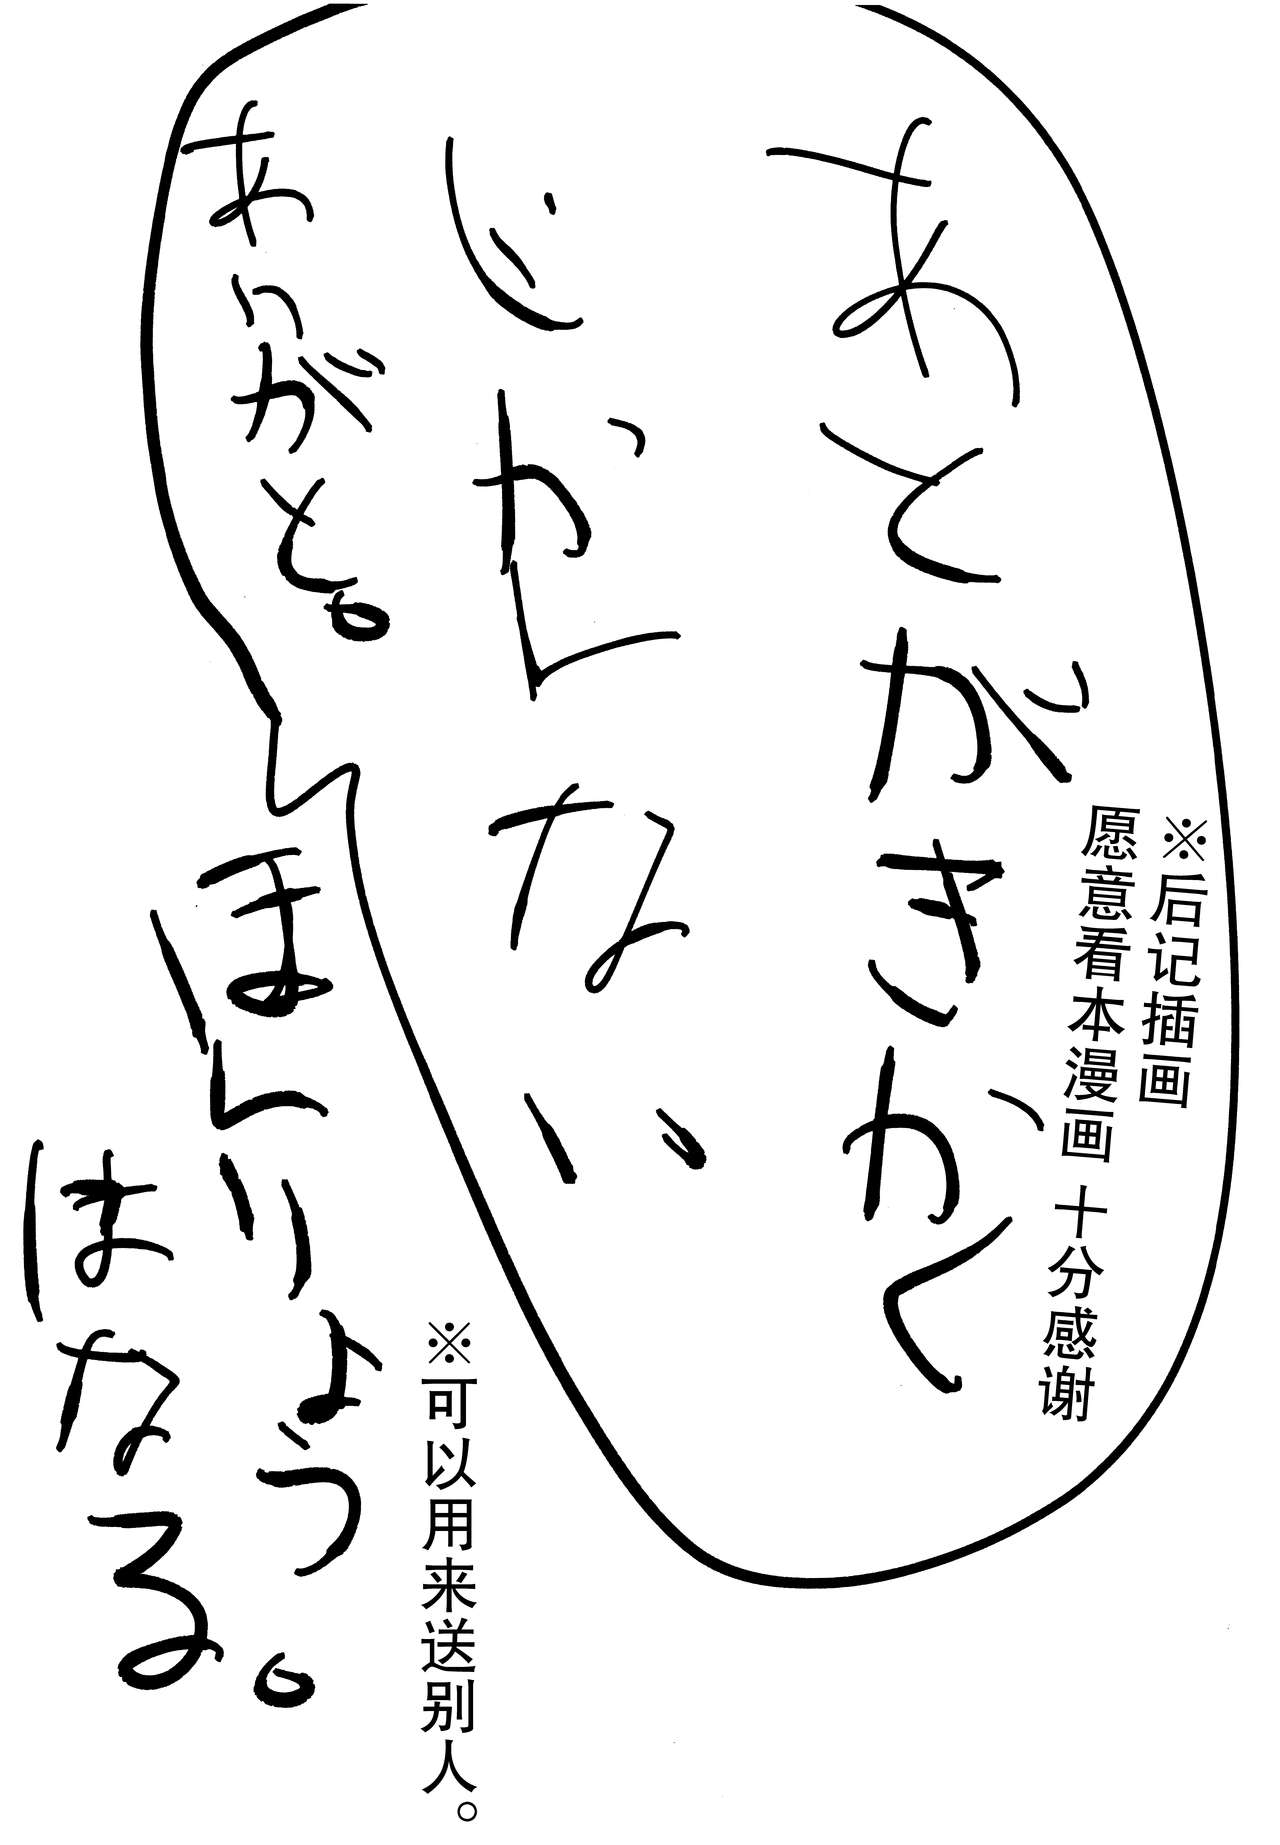 あとがきかく
じかんない
ありがと。
※后记插画
愿意看本漫画 十分感谢
ほんりょう。
はなる。
※可以用来送别人。